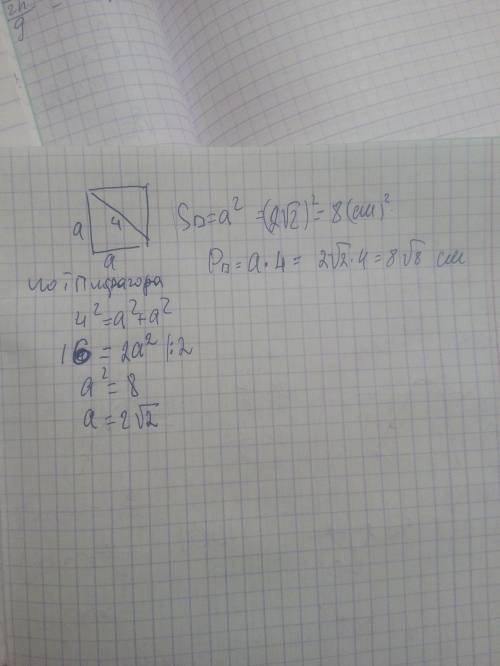 2n
9
a
4
a
S□=a² =(2√2)²=8(см)²
P□=a·4= 2√2·4=8√8 см
по т Пифагора
4²=a²+a²
16=2a² |:2
a²=8
a=2√2